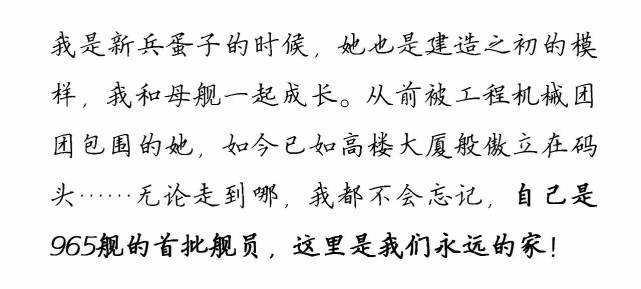 我是新兵蛋子的时候，她也是建造之初的模
样，我和母舰一起成长。从前被工程机械团
团包围的她，如今已如高楼大厦般傲立在码
头······无论走到哪，我都不会忘记，自己是
965舰的首批舰员，这里是我们永远的家！